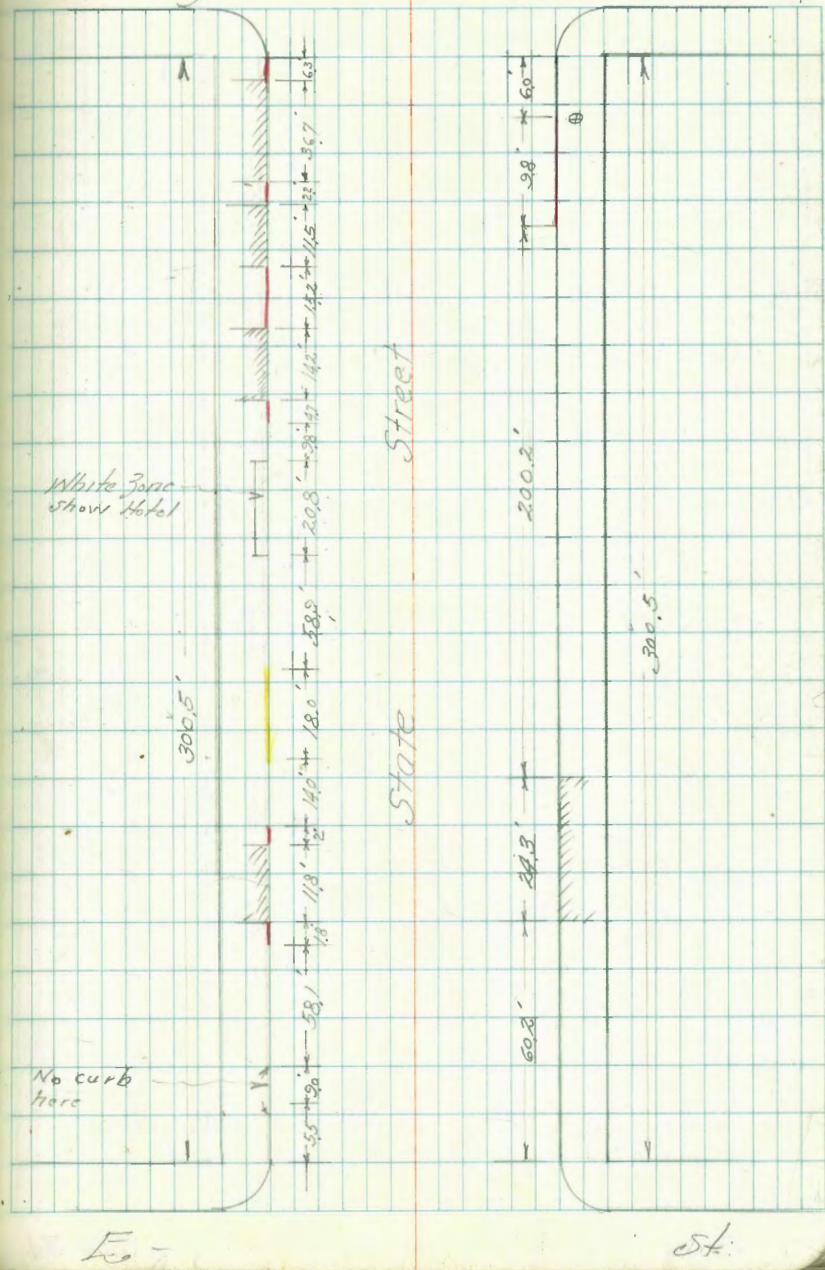 6.3'
36.7'
2.2'
11.5'
15.2'
14.2'
4.7'
9.8'
20.8'
58.9'
18.0'
14.0'
2'
11.8'
1.8'
58.1'
9.0'
5.5
300.5'
White Zone
show Hotel
No curb
here
State Street
6.0'
9.8'
200.2'
24.3'
60.2'
300.5'
E -
St.